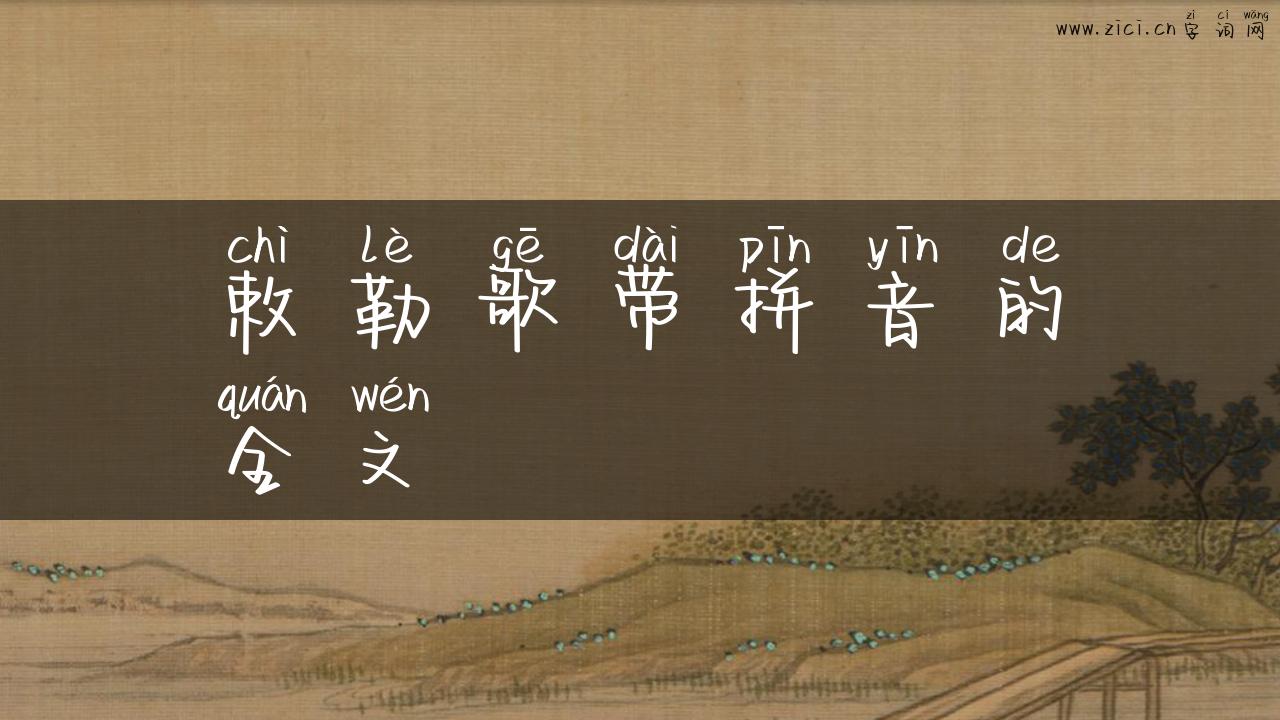 zì cí wǎng
www.zici.cn字词网
chì lè gē dài pīn yīn de
敕勒歌带拼音的
quán wén
全文